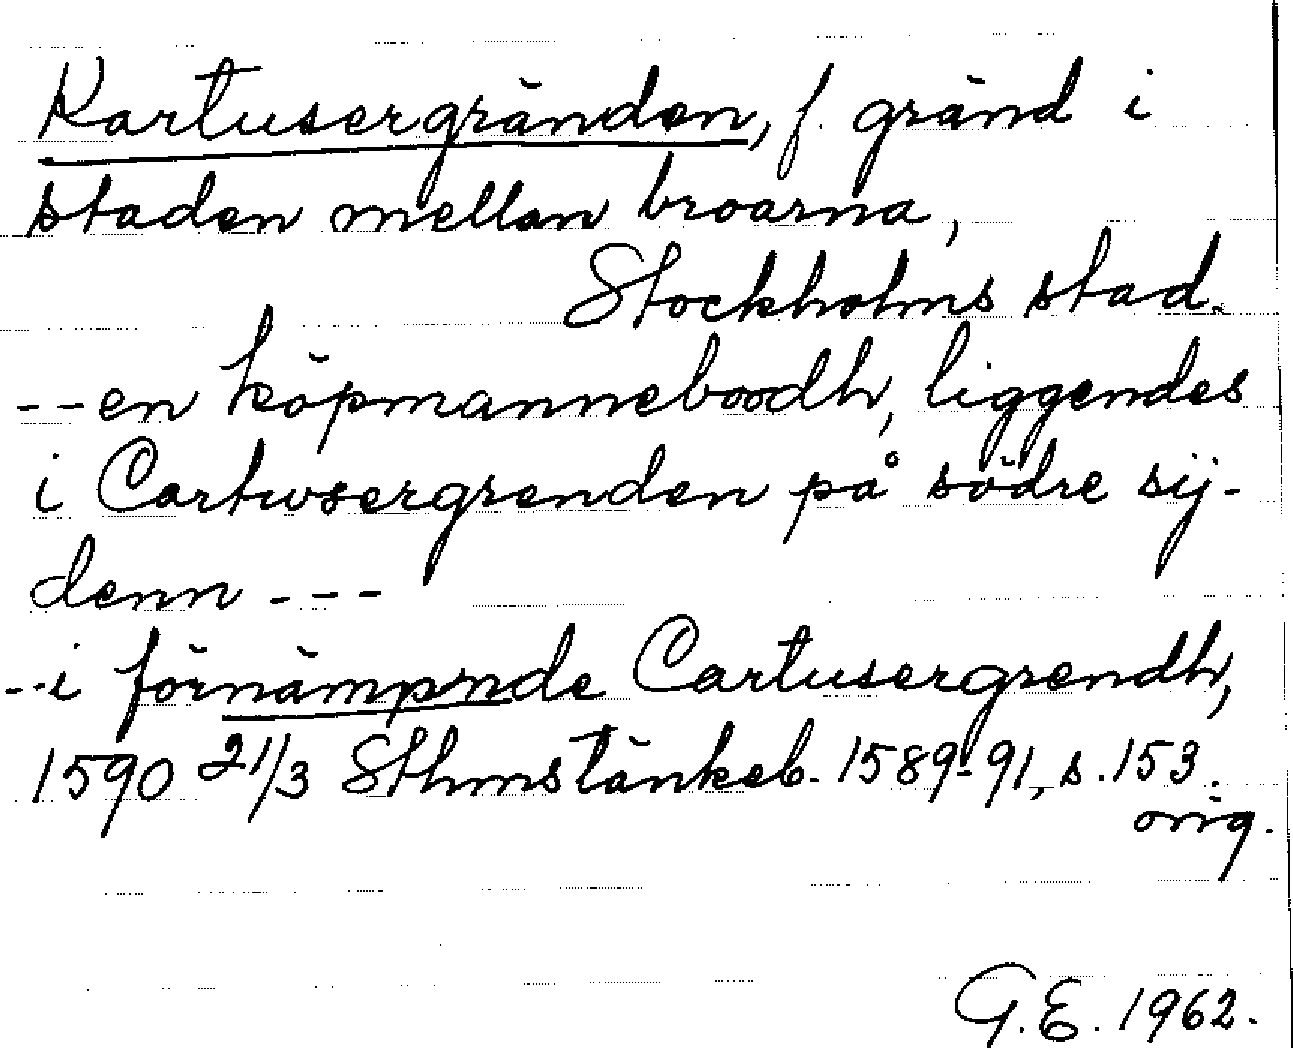 Kartusergränden, f. gränd i
staden mellan broarna,
Stockholms stad.
--en köpmanneboodh, liggendes
i Cartwsergrenden på södre sij-
denn ---
--i förnämpnde Cartusergrendh,
1590 21/3 Sthmstänkeb. 1589-91, s. 153.
orig.
G.E. 1962.